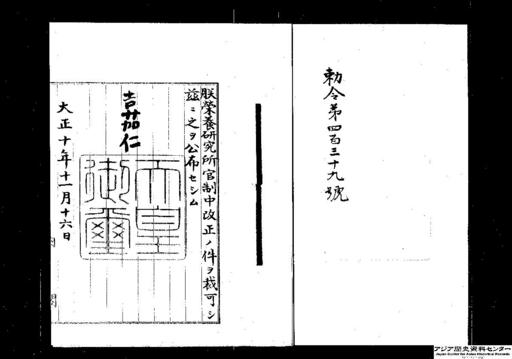 勅令第四百三十九號
朕榮養研究所官制中改正ノ件ヲ裁可シ
茲ニ之ヲ公布セシム
嘉仁
天皇
御璽
大正十年十一月十六日
アジア歴史資料センター
Japan Center for Asian Historical Records